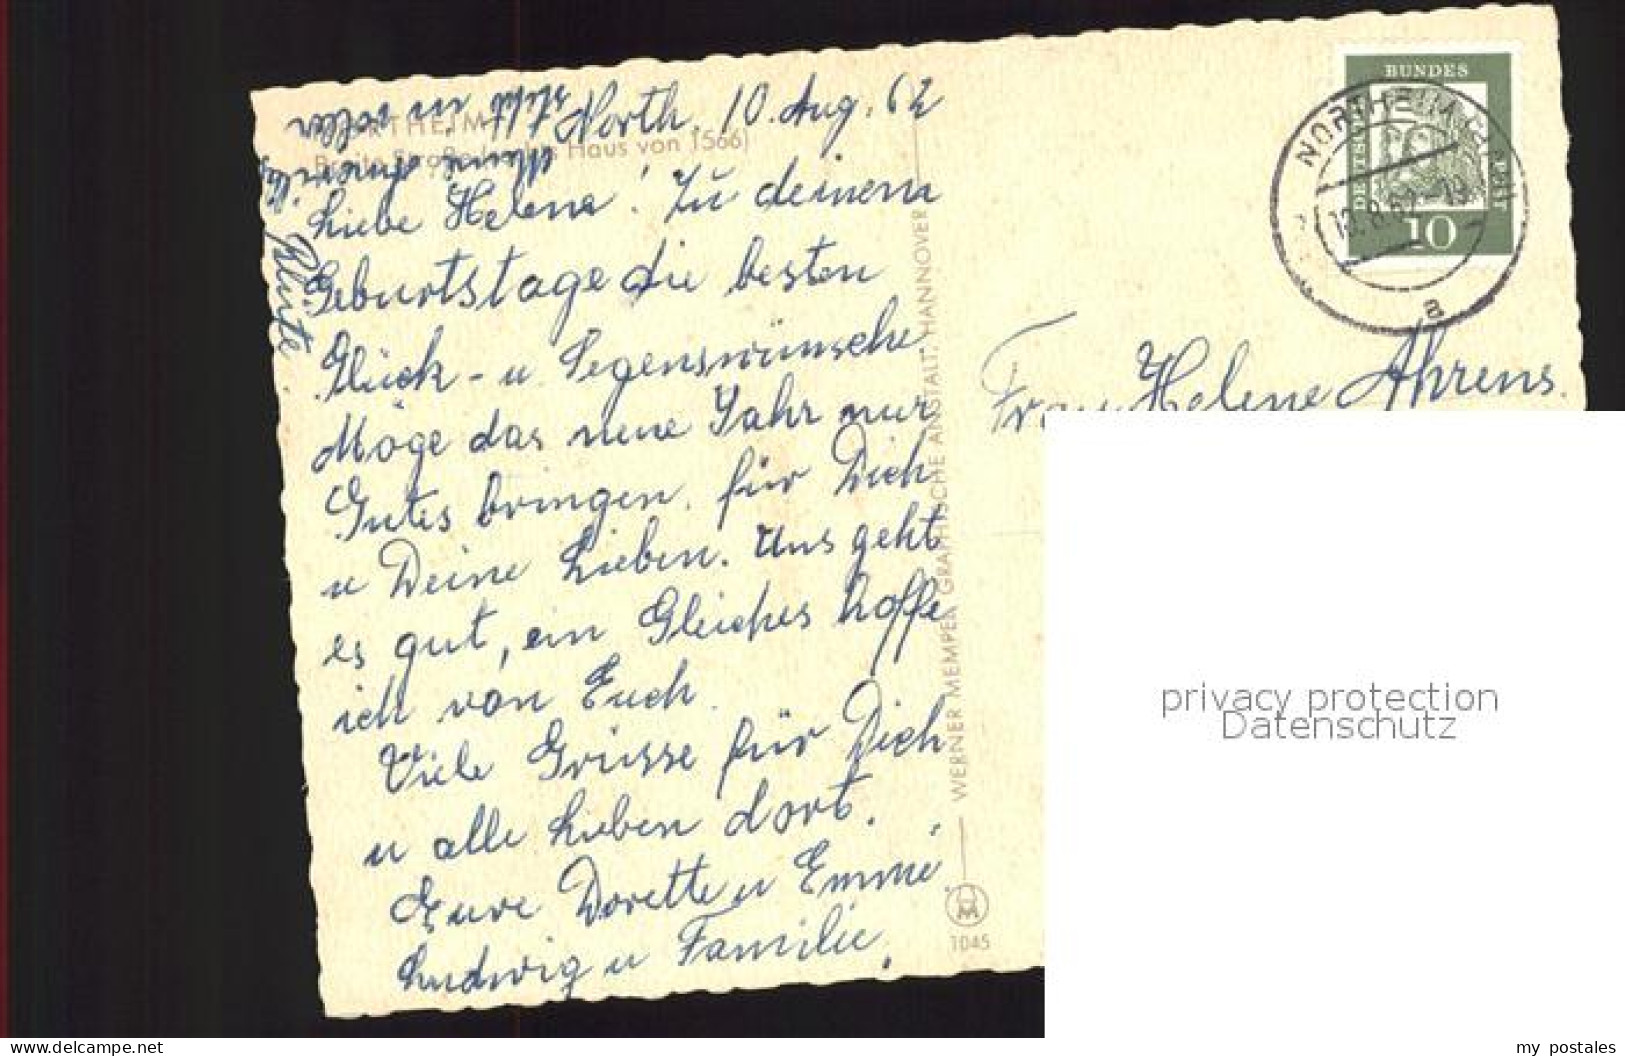 NORTHEIM
Breite Straße Haus von 1566)
North. 10. Aug. 62
Liebe Helene! Zu deinem
Geburtstage die besten
Glück- u Segenswünsche
Möge das neue Jahr nur
Gutes bringen für Dich
u Deine Lieben. Uns geht
es gut, ein Gleiches hoffe
ich von Euch.
Viele Grüsse für Dich
u alle Lieben dort.
Eure Dorette u Emmi
Ludwig u Familie.
steht in voller
Blüte.
WERNER MEMPEL GRAPHISCHE ANSTALT, HANNOVER
1045
DEUTSCHE BUNDES POST
10
NORTHEIM
13.8.62-19
a
Frau Helene Ahrens.
privacy protection
Datenschutz
www.delcampe.net
my_postales